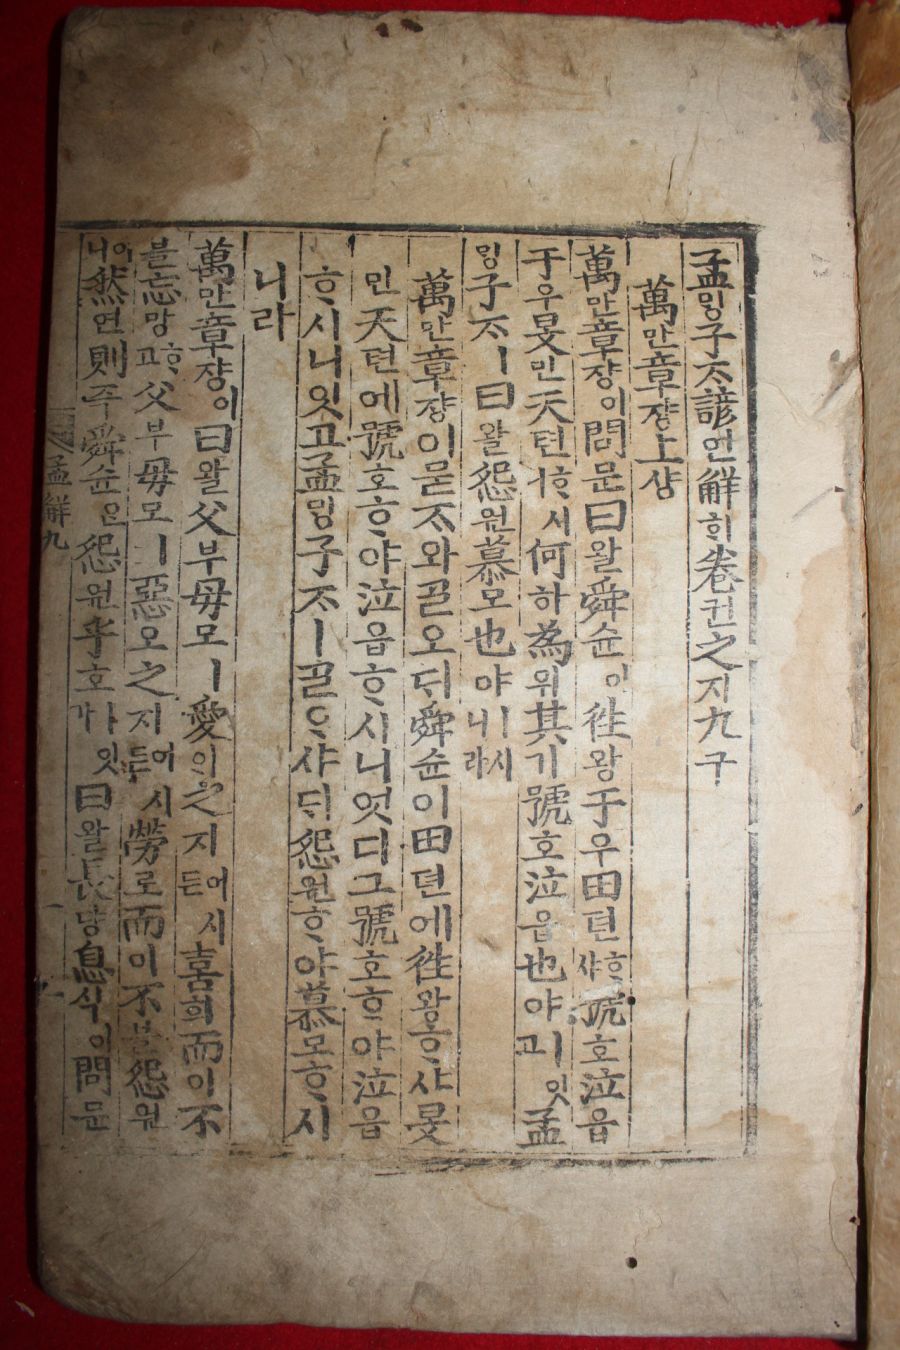 孟ᄆᆡᆼ子ᄌᆞ諺언解ᄒᆡ卷권之지九구
萬만章쟝上샹
萬만章쟝이問문曰왈舜슌이徃왕于우田뎐ᄒᆞ샤號호泣읍
于우旻민天텬ᄒᆞ시니何하為위其기號호泣읍也야ᅵ잇고孟
ᄆᆡᆼ子ᄌᆞᅵ曰왈怨원慕모也야ᅵ시니라
萬만章쟝이묻ᄌᆞ와ᄀᆞᆯ오ᄃᆡ舜슌이田뎐에徃왕ᄒᆞ샤旻
민天텬에號호ᄒᆞ야泣읍ᄒᆞ시니엇디그號호ᄒᆞ야泣읍
ᄒᆞ시니잇고孟ᄆᆡᆼ子ᄌᆞᅵᄀᆞᆯᄋᆞ샤ᄃᆡ怨원ᄒᆞ야慕모ᄒᆞ시
니라
萬만章쟝이曰왈父부母모ᅵ愛ᄋᆡ之지어시든喜희而이不
블忘망ᄒᆞ고父부母모ᅵ惡오之지어시든勞로而이不블怨원
이니然연則즉舜슌은怨원乎호잇가曰왈長댱息식이問문
孟解九